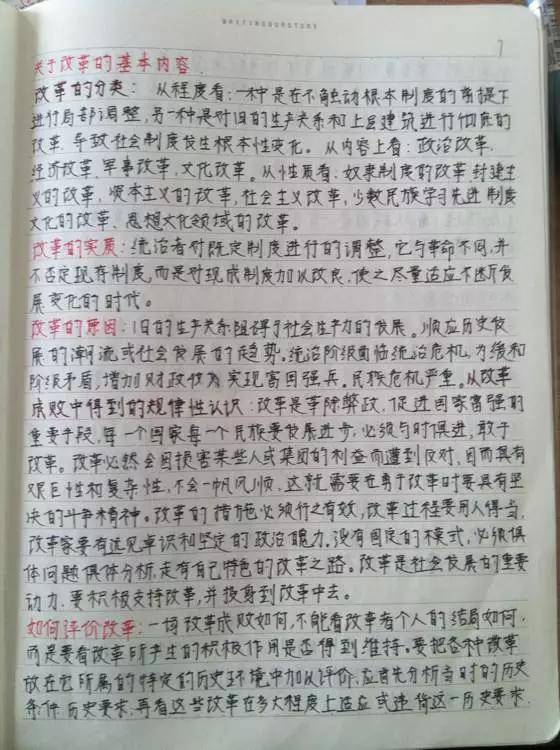 7
关于改革的基本内容.
改革的分类: 从程度看:一种是在不触动根本制度的前提下
进行局部调整,另一种是对旧的生产关系和上层建筑进行彻底的
改革,导致社会制度发生根本性变化。从内容上看:政治改革,
经济改革,军事改革,文化改革。从性质看:奴隶制度的改革 封建主
义的改革,资本主义的改革,社会主义改革,少数民族学习先进制度
文化的改革、思想文化领域的改革。
改革的实质:统治者对既定制度进行的调整,它与革命不同,并
不否定现存制度,而是对现成制度加以改良,使之尽量适应不断发
展变化的时代。
改革的原因:旧的生产关系阻碍了社会生产力的发展。顺应历史发
展的潮流或社会发展的趋势。统治阶级面临统治危机,为缓和
阶级矛盾,增加财政收入 实现富国强兵。民族危机严重。从改革
成败中得到的规律性认识:改革是革除弊政,促进国家富强的
重要手段,每一个国家每一个民族要发展进步,必须与时俱进,敢于
改革。改革必然会因损害某些人或集团的利益而遭到反对,因而具有
艰巨性和复杂性,不会一帆风顺,这就需要在勇于改革时要具有坚
决的斗争精神。改革的措施必须行之有效,改革过程要用人得当,
改革家要有远见卓识和坚定的政治魄力。没有固定的模式,必须具
体问题具体分析,走有自己特色的改革之路。改革是社会发展的重要
动力,要积极支持改革,并投身到改革中去。
如何评价改革:一场改革成败如何,不能看改革者个人的结局如何,
而是要看改革所产生的积极作用是否得到维持。要把各种改革
放在它所属的特定的历史环境中加以评价,应首先分析当时的历史
条件,历史要求,再看这些改革在多大程度上适应或违背这一历史要求.